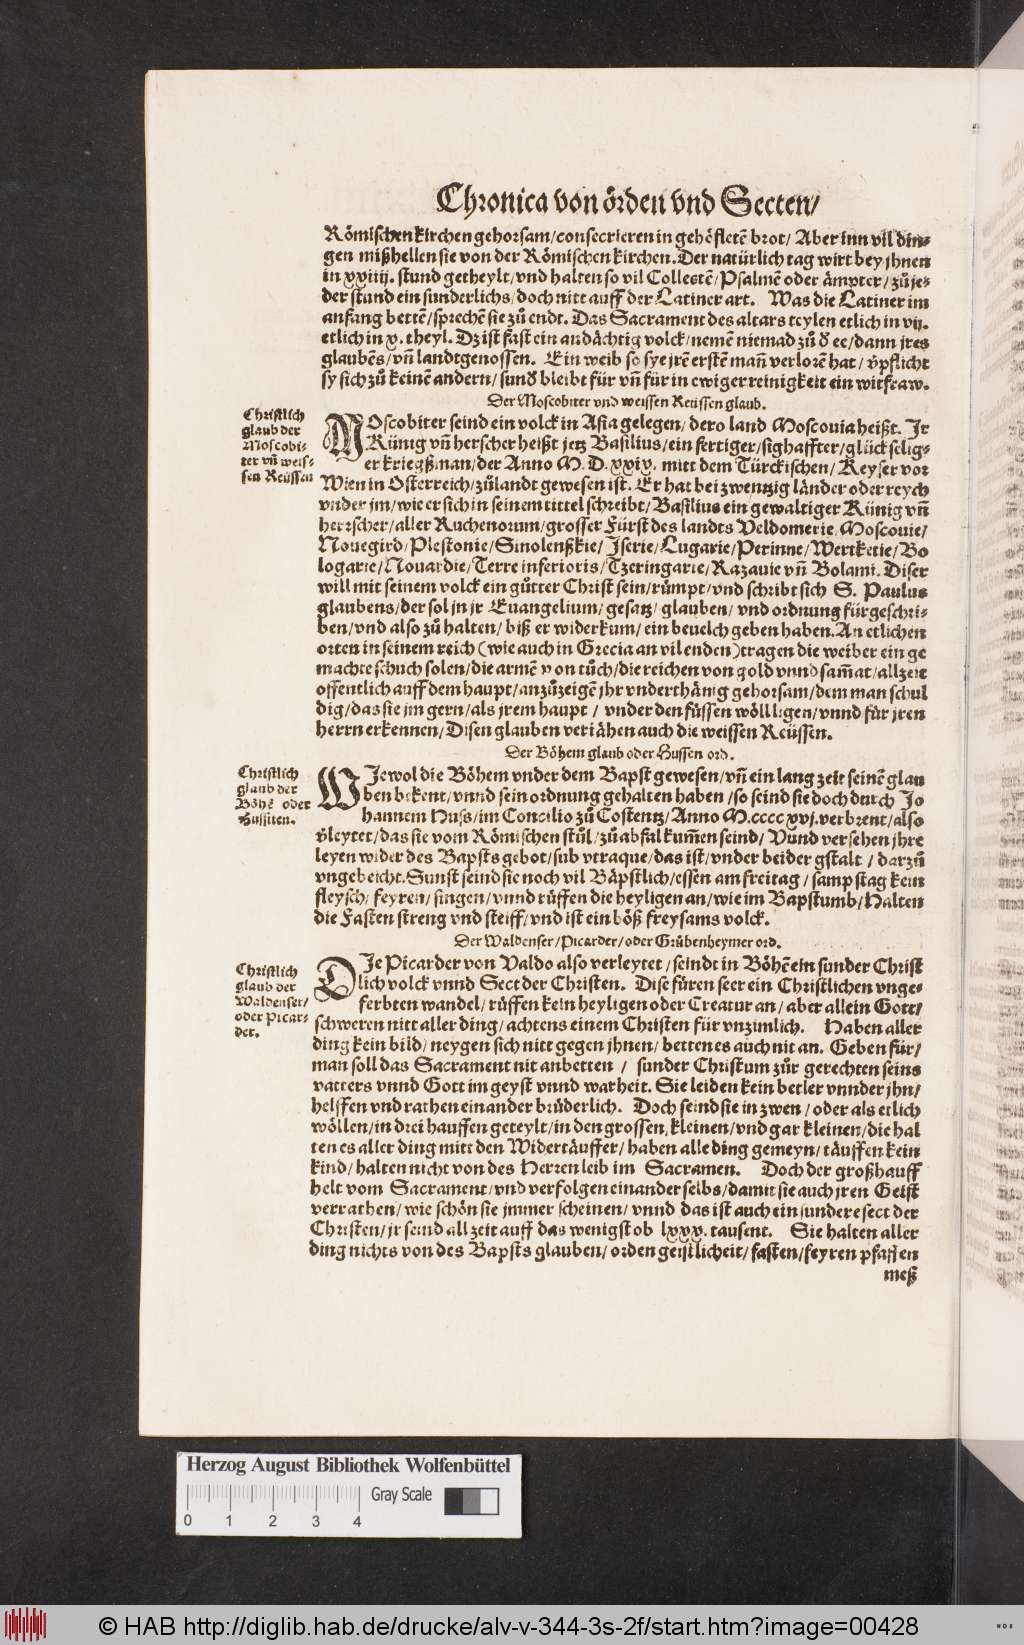 Chronica von örden vnd Secten/
Römischen kirchen gehorsam/consecrieren in gehöfletē brot/ Aber inn vil din-
gen mißhellen sie von der Römischen kirchen. Der natürlich tag wirt bey jhnen
in xxiiij. stund getheylt/vnd halten so vil Collectē/Psalmē oder ämpter/zů je-
der stund ein sunderlichs/doch nitt auff der Latiner art. Was die Latiner im
anfang bettē/sprechē sie zů endt. Das Sacrament des altars teylen etlich in vij.
etlich in x. theyl. Dz ist fast ein andächtig volck/nemē niemad zů ð ee/dann jres
glaubēs/vñ landtgenossen. Ein weib so sye jrē erstē mañ verlorē hat/ v̄pflicht
sy sich zů keinē andern/sunð bleibt für vñ für in ewiger reinigkeit ein witfraw.
Der Moscobiter vnd weissen Reüssen glaub.
Christlich
glaub der
Moscobi-
ter vñ weis-
sen Reüssen
MOscobiter seind ein volck in Asia gelegen/dero land Moscouia heißt. Jr
Künig vñ herscher heißt jetz Basilius/ein fertiger/sighaffter/glückselig-
er kriegßman/der Anno M. D. xxix. mitt dem Türckischen/Keyser vor
Wien in Osterreich/zůlandt gewesen ist. Er hat bei zwentzig länder oder reych
vnder jm/wie er sich in seinem tittel schreibt/Basilius ein gewaltiger Künig vñ
herrscher/aller Ruchenorum/grosser Fürst des landts Veldomerie, Moscouie/
Nouegird/Plestonie/Smolenßkie/ Iserie/Lugarie/Perinne/Wertketie/Bo
logarie/Nouardie/Terre inferioris/Tzeringarie/Razauie vñ Bolami. Diser
will mit seinem volck ein gůtter Christ sein/růmpt/vnd schribt sich S. Paulus
glaubens/der sol jn jr Euangelium/gesatz/glauben/vnd ordnung fürgeschri-
ben/vnd also zů halten/ biß er widerkum/ein beuelch geben haben. An etlichen
orten in seinem reich (wie auch in Grecia an vil enden) tragen die weiber ein ge
machte schuch solen/die armē von tůch/die reichen von gold vnnd sam̄at/allzeit
offentlich auff dem haupt/anzůzeigē jhr vnderthänig gehorsam/dem man schul
dig/das sie jm gern/als jrem haupt / vnder den füssen wöll ligen/vnnd für jren
herrn erkennen/Disen glauben veriähen auch die weissen Reüssen.
Der Böhem glaub oder Hussen ord.
Christlich
glaub der
Böhē oder
Hussiten.
WJewol die Böhem vnder dem Bapst gewesen/vñ ein lang zeit seinē glau
ben bekent/vnnd sein ordnung gehalten haben /so seind sie doch durch Jo
hannem Huss/im Concilio zů Costentz/Anno M.cccc xvj.verbrent/also
v̄leytet/das sie vom Römischen stůl/zů abfal kum̄en seind/ Vnnd versehen jhre
leyen wider des Bapsts gebot/sub vtraque/das ist/vnder beider gstalt / darzů
vngebeicht. Sunst seind sie noch vil Bäpstlich/essen am freitag / sampstag kein
fleysch/ feyren/ singen/vnnd rüffen die heyligen an/wie im Bapstumb/Halten
die Fasten streng vnd steiff/vnd ist ein böß freysams volck.
Der Waldenser/Picarder/oder Grůbenheymer ord.
Christlich
glaub der
Waldenser/
oder Picar-
der.
DJe Picarder von Valdo also verleytet/seindt in Böhē ein sunder Christ
lich volck vnnd Sect der Christen. Dise füren seer ein Christlichen vnge-
ferbten wandel/rüffen kein heyligen oder Creatur an/aber allein Gott/
schweren nitt aller ding/achtens einem Christen für vnzimlich. Haben aller
ding kein bild/neygen sich nitt gegen jhnen/bettenes auch nit an. Geben für/
man soll das Sacrament nit anbetten / sunder Christum zůr gerechten seins
vatters vnnd Gott im geyst vnnd warheit. Sie leiden kein betler vnnder jhn/
helffen vnd rathen einander brůderlich. Doch seind sie in zwen/oder als etlich
wöllen/in drei hauffen geteylt/in den grossen, kleinen/vnd gar kleinen/die hal
ten es aller ding mitt den Widertäuffer/haben alle ding gemeyn/täuffen kein
kind/halten nicht von des Herren leib im Sacramen. Doch der großhauff
helt vom Sacrament/vnd verfolgen einander selbs/damit sie auch jren Geist
verrathen/wie schön sie jmmer scheinen/vnnd das ist auch ein sundere sect der
Christen/jr seind all zeit auff das wenigst ob lxxx. tausent. Sie halten aller
ding nichts von des Bapsts glauben/orden geistlicheit/fasten/feyren pfaffen
meß
Herzog August Bibliothek Wolfenbüttel
Gray Scale
0 1 2 3 4
© HAB http://diglib.hab.de/drucke/alv-v-344-3s-2f/start.htm?image=00428